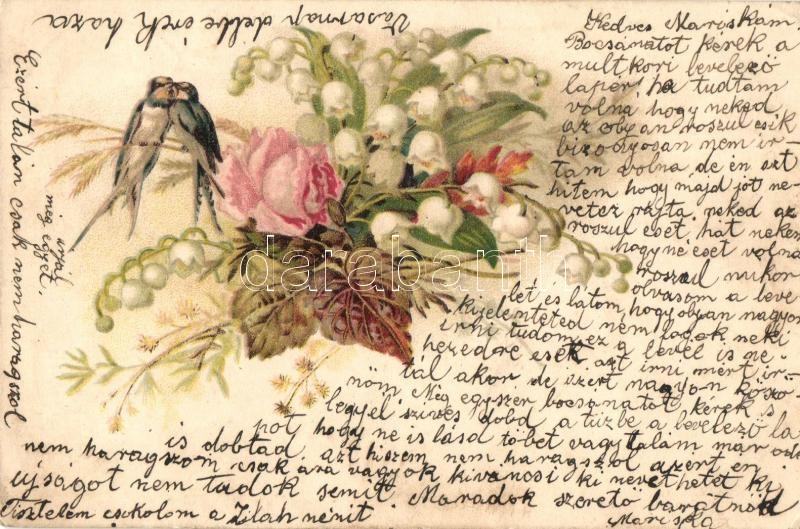 Kedves Mariskám
Bocsánatot kérek a
multkori levelező
laper ha tudtam
volna hogy neked
az olyan roszul esik
bizonyosan nem ir-
tam volna de én azt
hitem hogy majd jót ne-
vetez rajta neked az
roszul eset, hát nekem
hogy ne eset volna
roszul mikor
olvasom a leve
let és látom, hogy olyan nagyon
kijelenteted nem fogok neki
irni tudom ez a levél is ne-
hezedre esik azt irni mért ir-
tál akor de ezert nagyon köszö-
nöm Még egyszer bocsánatot kérek s
legyel szives dobd a tüzbe a levelező la
pot hogy ne is lásd többet vagy talám már
is dobtad. azt hiszem nem haragszol azert en
nem haragszom csak ara vagyok kiváncsi ki nevethetet ki
ujságot nem tudok semit Maradok szerető barátnőd
Tisztelem csokolom a Zilah nénit. Mariska
Ezert talan csak nem haragszol
irjál
még egyet.
Vasárnap delbe érek haza
darabanth